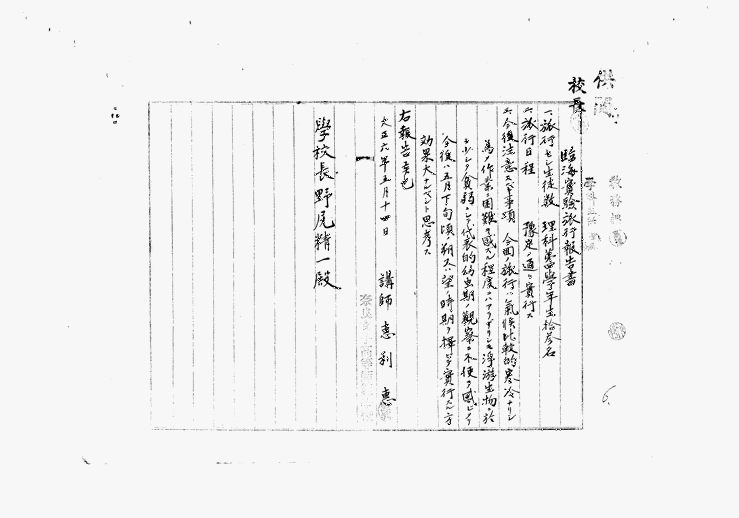 供閲
校長
臨海實驗旅行報告書
一、旅行セシ生徒數　理科第四學年生拾参名
二、旅行日程　豫定ノ通リ實行ス
三、今後注意スベキ事項　今回ノ旅行ハ氣候比較的寒冷ナリシ
為メ作業ニ困難ヲ感ズル程度ニハアラザリシモ浮游生物ニ於
テ少シク貧弱ニシテ代表的幼虫期ノ觀察ニ不便ヲ感ゼシ
今後ハ五月下旬頃ノ朔又ハ望ノ時期ヲ擇ビテ實行スル方
効果大ナルベシト思考ス
右報告
大正六年五月十四日
講師　恵利　惠
學校長　野尻精一殿